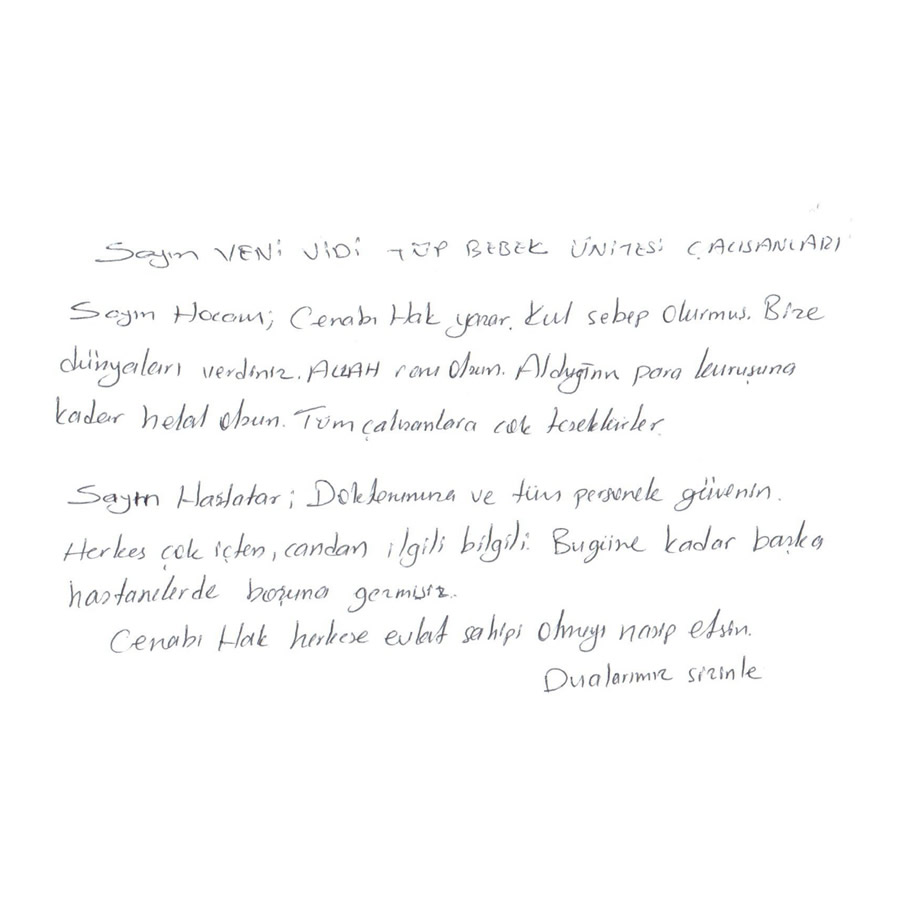 Sayın VENİ VİDİ TÜP BEBEK ÜNİTESİ ÇALIŞANLARI
Sayın Hocam; Cenabı Hak yazar. Kul sebep olurmuş. Bize
dünyaları verdiniz. ALLAH razı olsun. Aldığınız para kuruşuna
kadar helal olsun. Tüm çalışanlara çok teşekkürler.
Sayın Hastalar; Doktorumuza ve tüm personele güvenin.
Herkes çok içten, candan ilgili bilgili. Bugüne kadar başka
hastanelerde boşuna gezmişiz.
Cenabı Hak herkese evlat sahipi olmayı nasip etsin.
Dualarımız sizinle